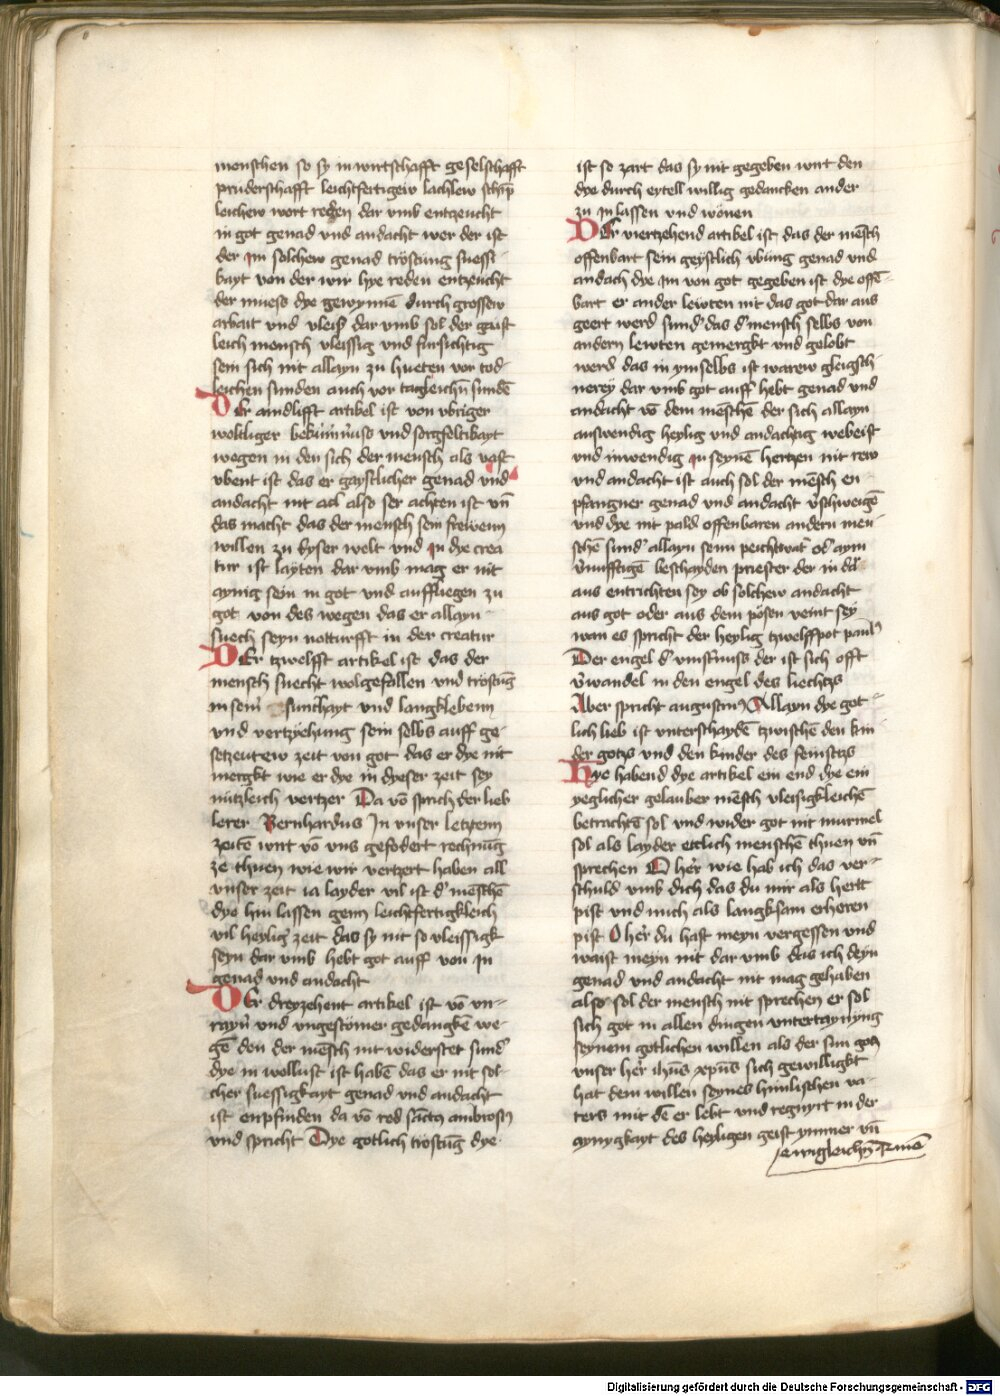 menschen so sy in wirtschafft geselschafft
pruderschafft leichtfertigew lachlew schip
leichew wort reden dar vmb entzeucht
in got genad vnd andacht wer der ist
der im solchew genad tröstung suessi
kayt von der wir hye reden entzeucht
der muess dye gewynnē durch grossew
arbait vnd vleiß dar vmb sol der gaist
leich mensch vleissig vnd fürsichtig
sein sich nit allayn zu hueten vor tod
leichen sunden auch vor tagleichn̄ sundē
DEr aindlifft artikel ist von vbriger
weltliger bekümmuss vnd sorgfeltikayt
wegen in den sich der mensch als vast
vbent ist das er gaystlicher genad vnd
andacht nit also ser achten ist vn̄
das macht das der mensch sein freyenn
willen zu dyser welt vnd in dye crea
tur ist layten dar vmb mag er nit
aynig sein in got vnd auffliegen zu
got von des wegen das er allayn
suech seyn notturfft in der creatur
DEr tzwelfft artikel ist das der
mensch suecht wolgefallen vnd tröstūg
in seinr sunthayt vnd langklebenn
vnd vertzyehung sein selbs auff ge
setzeutew zeit von got das er dye nit
mergkt wie er dye in dyeser zeit sey
nützleich vertzer Da vō sprich der lieb
lerer Bernhardus In vnser letztenn
zeitē wirt vō vns gefodert rechnūg
ze thuen wie wir vertzert haben all
vnser zeit ia layder vil ist d' mēschē
dye hin lassen genn leichtfertigkleich
vil heylig zeit das sy nit so vleissigk
seyn dar vmb hebt got auff von in
genad vnd andacht
DEr dreyzehent artikel ist vō vn-
rayn̄ vnd vngestömer gedangkē we
gē den der mēsch nit widerstet sund'
dye in wollust ist habē das er nit sol
cher suessigkayt genad vnd andacht
ist enpfinden da vō red sāctus ambrosius
vnd spricht Dye gotlich tröstūg dye
ist so zart das sy nit gegeben wirt den
dye durch eytell willig gedancken ander
zu in lassen vnd wonen
DEr viertzehend artikel ist das der mēsch
offenbart sein geystlich vbung genad vnd
andach dye im von got gegeben ist dye offē
bart er ander lewten nit das got dar aus
geert werd sund' das d' mensch selbs von
andern lewten gemergkt vnd gelobt
werd das in ymselbs ist warew gleigsch
nerey dar vmb got auff hebt genad vnd
andacht vō dem mēschē der sich allayn
auswendig heylig vnd andachtig webeist
vnd inwendig in seynē hertzen nit rew
vnd andacht ist auch sol der mēsch en
pfangner genad vnd andacht v̄schweigē
vnd dye nit pald offenbaren andern men
schē sund' allayn seim peichtvat' od' aym
v̄nufftigē beschayden priester der in dar
aus entrichten sey ob solchew andacht
aus got oder aus dem pösen veint sey
wan es spricht der heylig tzwelffpot paul9
Der engel d' vinst'nuss der ist sich offt
v̄wandel in den engel des liechtzs
Aber spricht augustin9 Allayn dye got
lich lieb ist vnterschaydē tzwischē den kin
der gotzs vnd den kinder des feintzs
Hye habend dye artikel ein end dye ein
yeglicher gelauber mēsch vleisigkleichē
betrachtē sol vnd wider got nit murmel
sol als layder ettlich menschē thuen vn̄
sprechen O her̄ wie hab ich das ver
schuld vmb dich das du mir als hertt
pist vnd mich als langksam erhoren
pist O her̄ du hast meyn vergessen vnd
waist meyn nit dar vmb das ich deyn
genad vnd andacht nit mag gehaben
also sol der mensch nit sprechen er sol
sich got in allen dingen vntertaynyng
seynem gotlichen willen als der sun gotz
vnser her̄ ihūs xpūs sich gewilligkt
hat dem willen seynes himlischen va
ters mit dē er lebt vnd regnyrt in der
aynygkayt des heyligen geist ymmer vn̄
ewigleichn̄ Amē
Digitalisierung gefördert durch die Deutsche Forschungsgemeinschaft - DFG